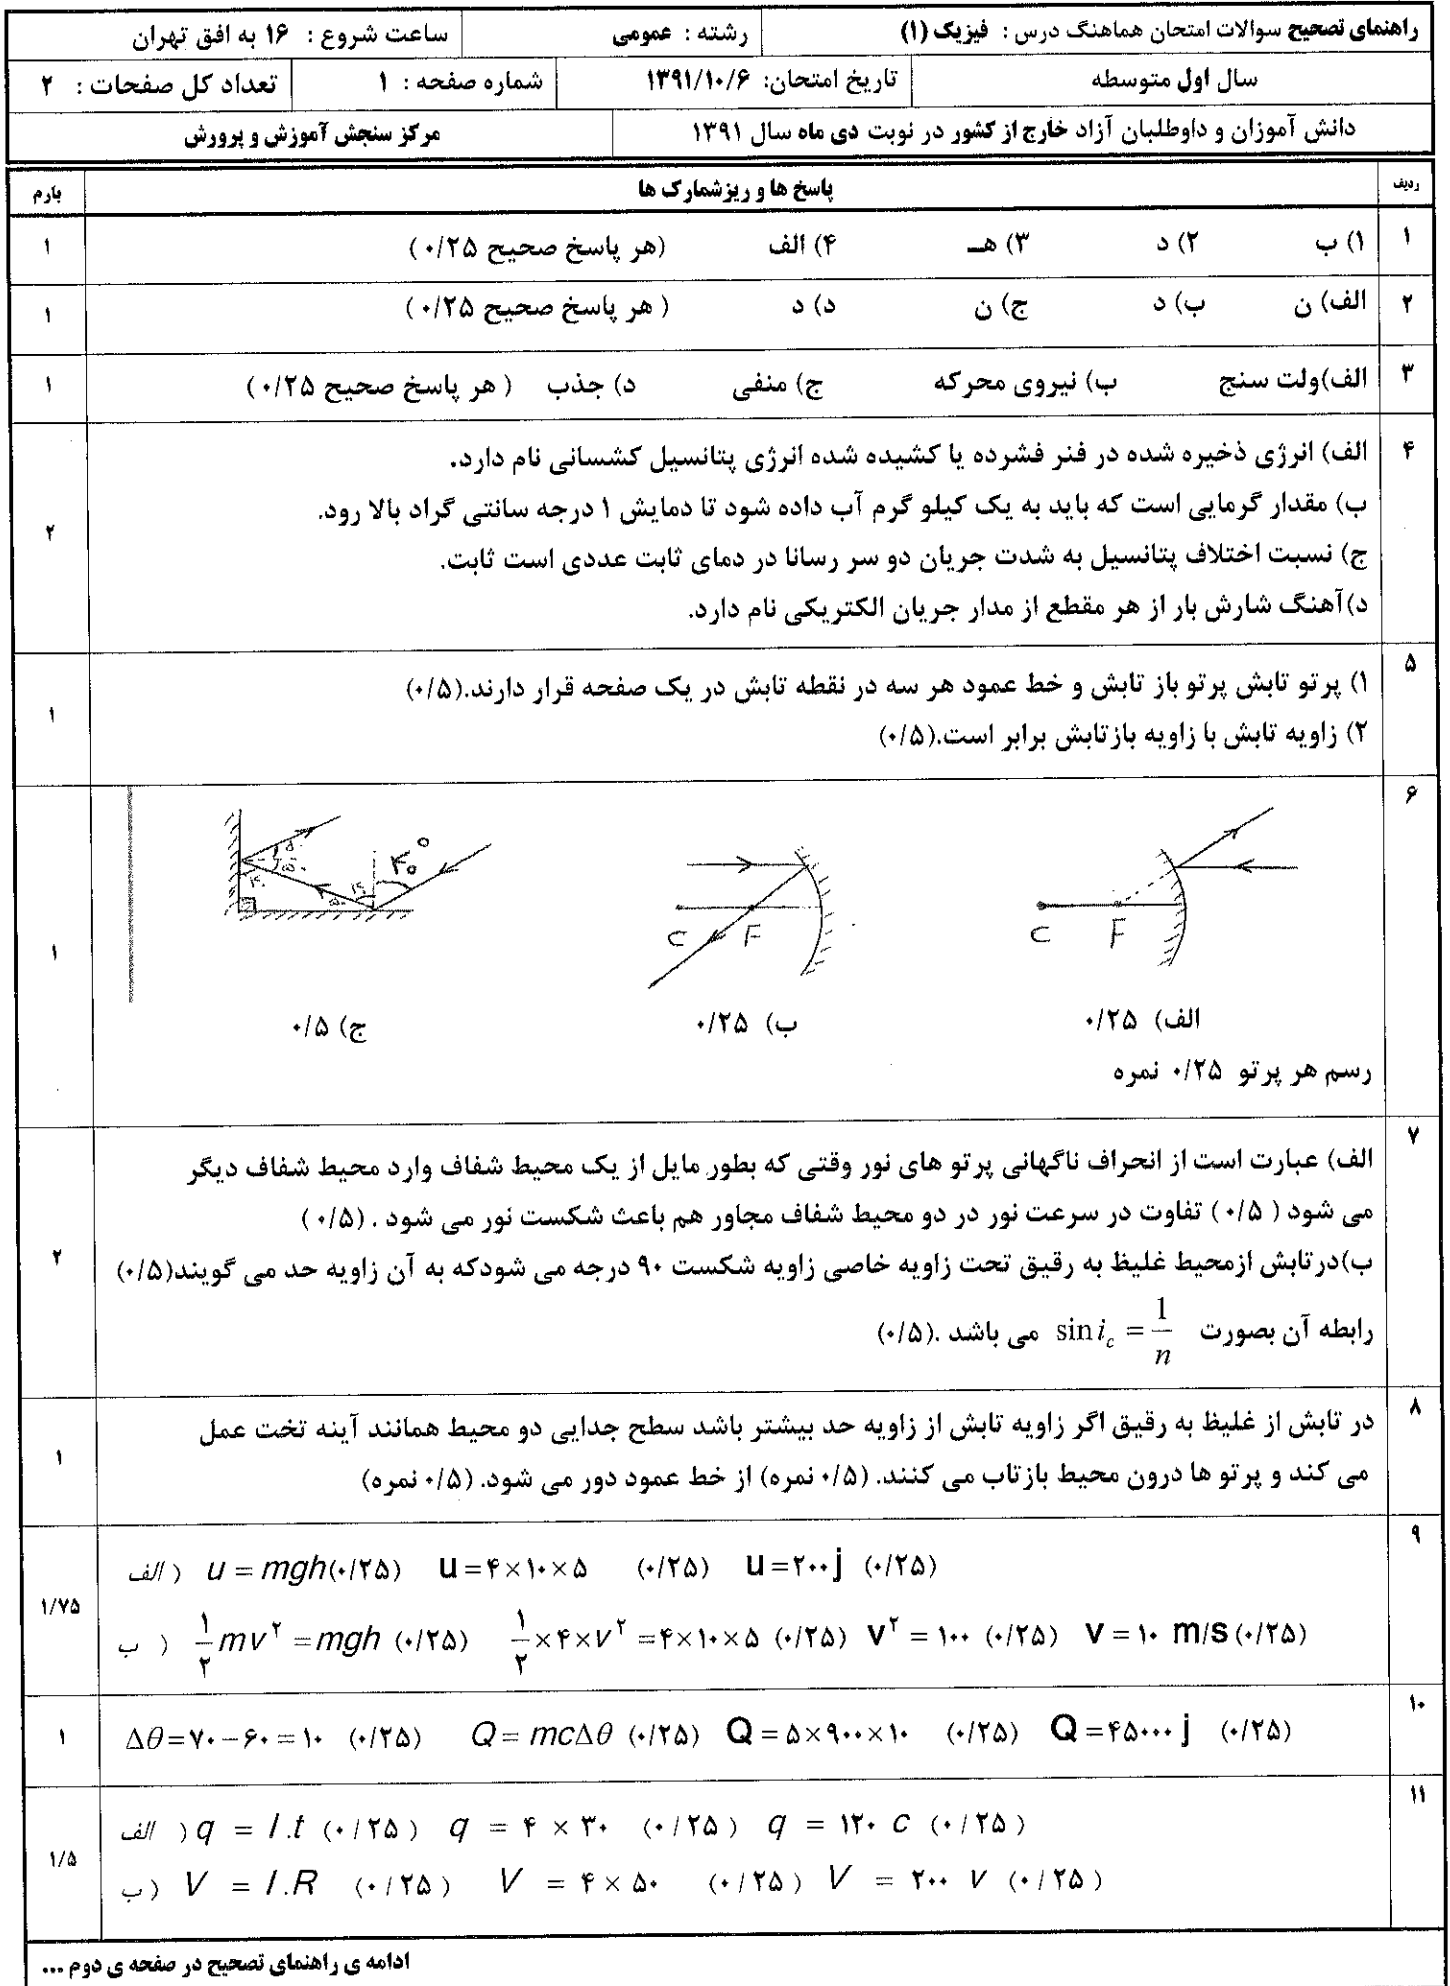 راهنمای تصحیح سوالات امتحان هماهنگ درس : فیزیک (۱) رشته : عمومی ساعت شروع : ۱۶ به افق تهران
سال اول متوسطه تاریخ امتحان: ۱۳۹۱/۱۰/۶ شماره صفحه : ۱ تعداد کل صفحات : ۲
دانش آموزان و داوطلبان آزاد خارج از کشور در نوبت دی ماه سال ۱۳۹۱ مرکز سنجش آموزش و پرورش
ردیف پاسخ ها و ریزشمارک ها بارم
۱ ۱) ب ۲) د ۳) هـ ۴) الف (هر پاسخ صحیح ۰/۲۵) ۱
۲ الف) ن ب) د ج) ن د) د ( هر پاسخ صحیح ۰/۲۵) ۱
۳ الف)ولت سنج ب) نیروی محرکه ج) منفی د) جذب ( هر پاسخ صحیح ۰/۲۵) ۱
۴ الف) انرژی ذخیره شده در فنر فشرده یا کشیده شده انرژی پتانسیل کشسانی نام دارد.
ب) مقدار گرمایی است که باید به یک کیلو گرم آب داده شود تا دمایش ۱ درجه سانتی گراد بالا رود. ۲
ج) نسبت اختلاف پتانسیل به شدت جریان دو سر رسانا در دمای ثابت عددی است ثابت.
د)آهنگ شارش بار از هر مقطع از مدار جریان الکتریکی نام دارد.
۵ ۱) پرتو تابش پرتو باز تابش و خط عمود هر سه در نقطه تابش در یک صفحه قرار دارند.(۰/۵) ۱
۲) زاویه تابش با زاویه بازتابش برابر است.(۰/۵)
۶ ۱
C F
C F
۴۰°
الف) ۰/۲۵ ب) ۰/۲۵ ج) ۰/۵
رسم هر پرتو ۰/۲۵ نمره
۷ الف) عبارت است از انحراف ناگهانی پرتو های نور وقتی که بطور مایل از یک محیط شفاف وارد محیط شفاف دیگر
می شود ( ۰/۵) تفاوت در سرعت نور در دو محیط شفاف مجاور هم باعث شکست نور می شود . (۰/۵ )
ب)درتابش ازمحیط غلیظ به رقیق تحت زاویه خاصی زاویه شکست ۹۰ درجه می شودکه به آن زاویه حد می گویند(۰/۵) ۲
رابطه آن بصورت sin i_c = 1/n می باشد .(۰/۵)
۸ در تابش از غلیظ به رقیق اگر زاویه تابش از زاویه حد بیشتر باشد سطح جدایی دو محیط همانند آینه تخت عمل
می کند و پرتو ها درون محیط بازتاب می کنند. (۰/۵ نمره) از خط عمود دور می شود. (۰/۵ نمره) ۱
۹ الف ) u = mgh(۰/۲۵) u=۴×۱۰×۵ (۰/۲۵) u=۲۰۰j (۰/۲۵)
ب ) ۱/۲ mv^۲ = mgh (۰/۲۵) ۱/۲×۴×v^۲ =۴×۱۰×۵ (۰/۲۵) v^۲ = ۱۰۰ (۰/۲۵) v = ۱۰ m/s(۰/۲۵) ۱/۷۵
۱۰ Δθ=۷۰−۶۰=۱۰ (۰/۲۵) Q= mcΔθ (۰/۲۵) Q=۵×۹۰۰×۱۰ (۰/۲۵) Q=۴۵۰۰۰ j (۰/۲۵) ۱
۱۱ الف ) q = I.t (۰/۲۵) q = ۴ × ۳۰ (۰/۲۵) q = ۱۲۰ c (۰/۲۵)
ب) V = I.R (۰/۲۵) V = ۴ × ۵۰ (۰/۲۵) V = ۲۰۰ v (۰/۲۵) ۱/۵
ادامه ی راهنمای تصحیح در صفحه ی دوم ...